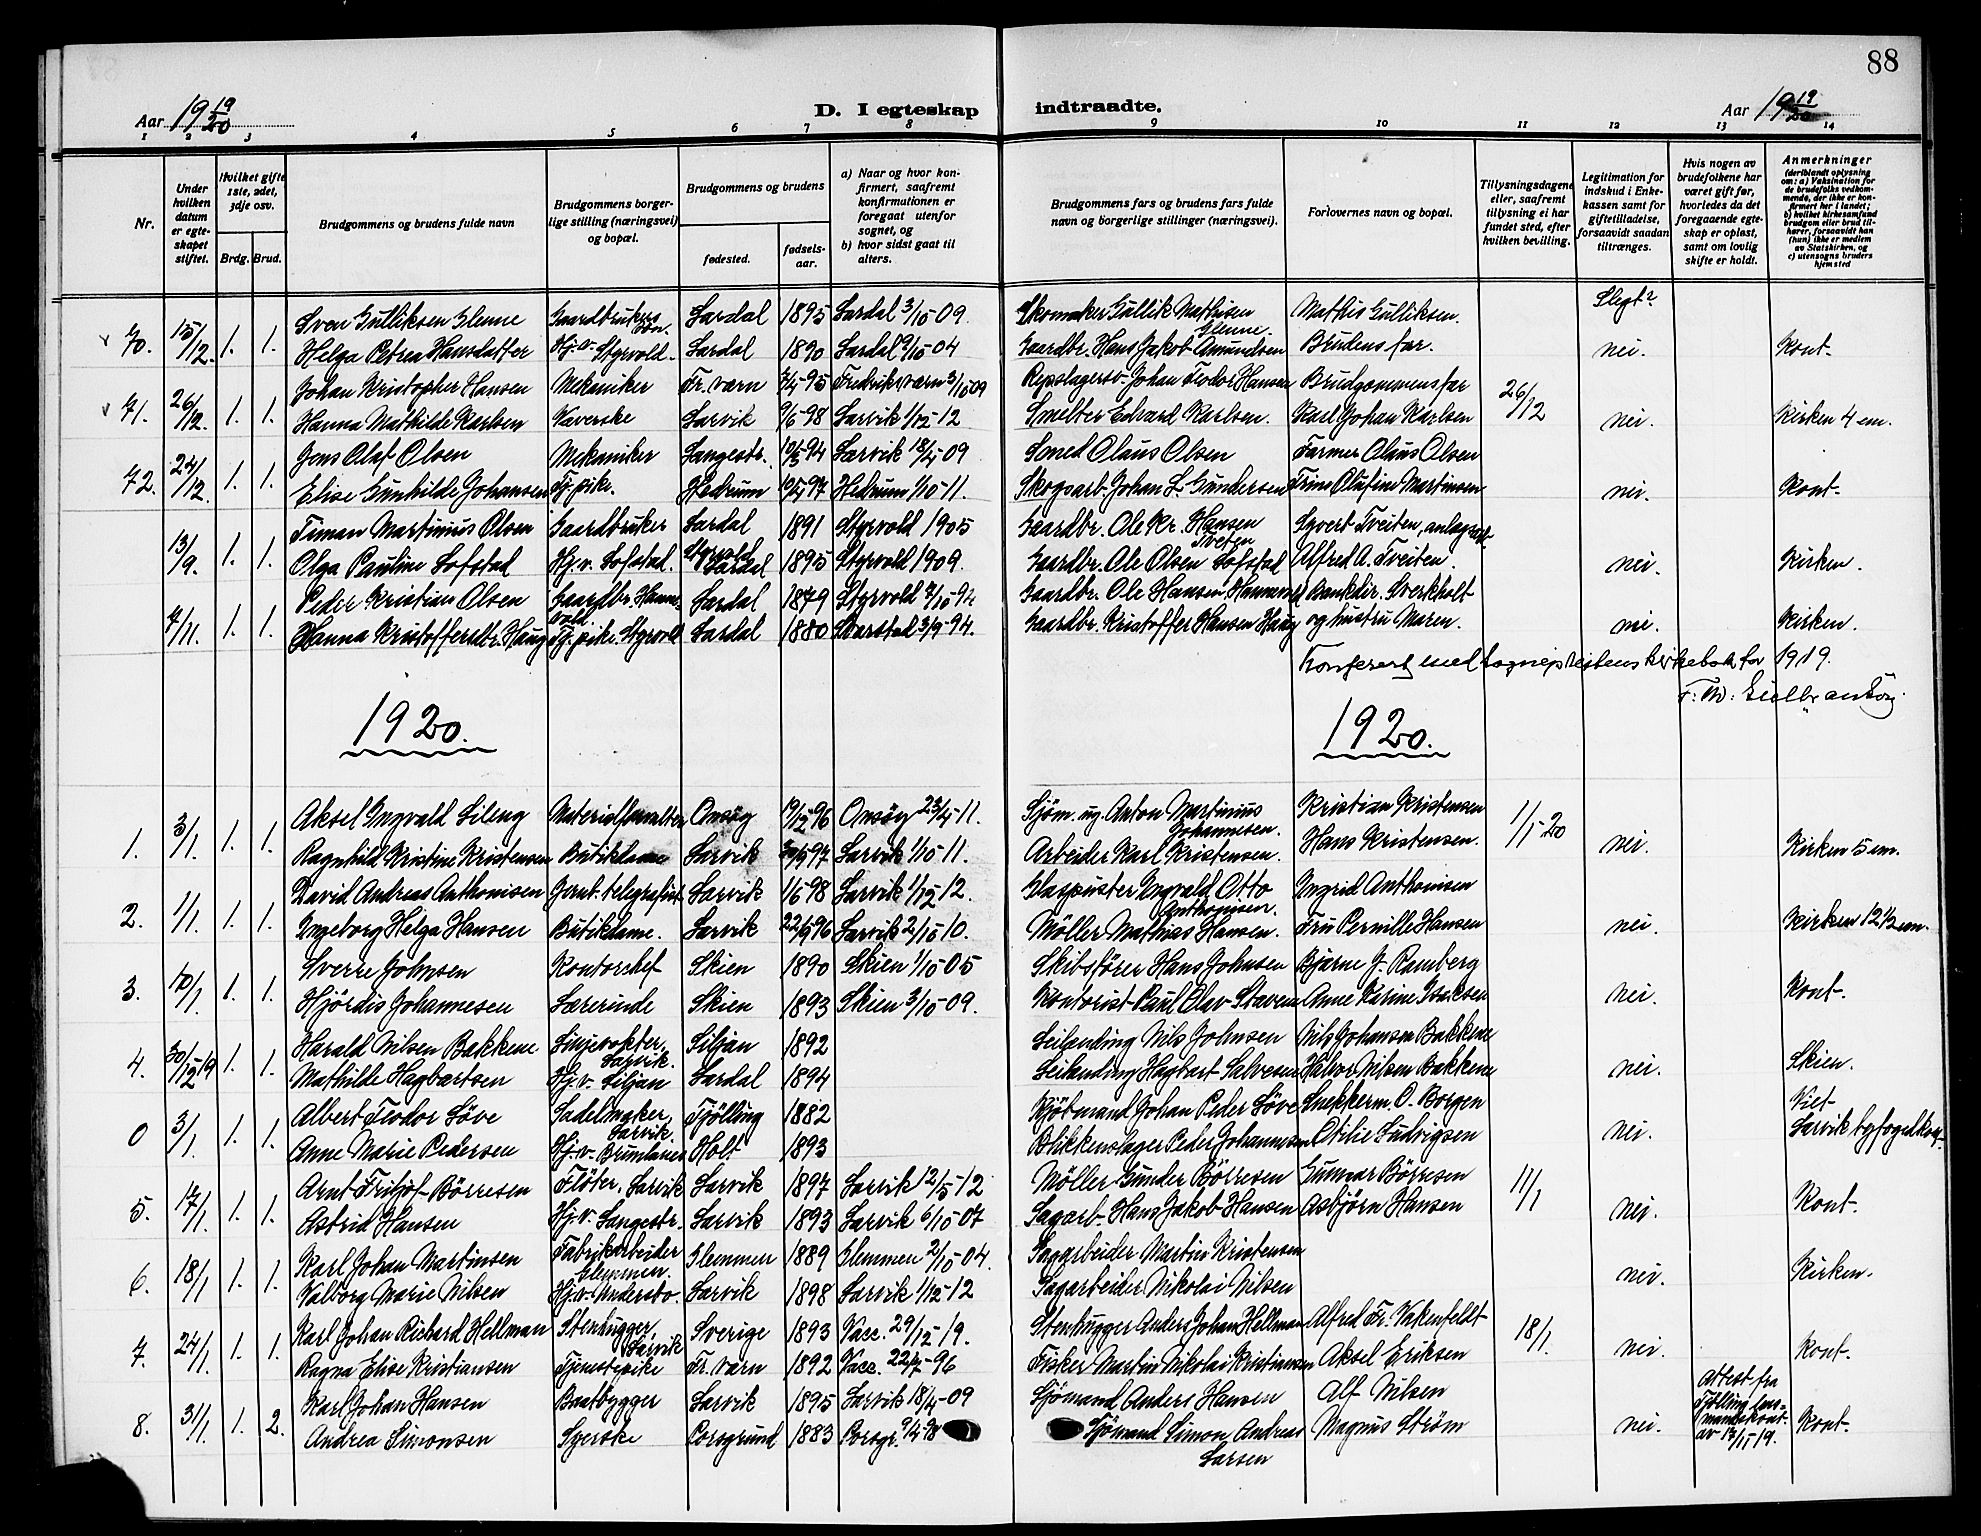 88
Aar 19 19/20
D. I egteskap indtraadte.
Aar 19 19/20
1 2 3 4 5 6 7 8 9 10 11 12 13 14
Nr.
Under hvilken datum er egteskapet stiftet.
Hvilket gifte 1ste, 2det, 3dje osv.
Brdg. Brud.
Brudgommens og brudens fulde navn
Brudgommens borgerlige stilling (næringsvei) og bopæl.
Brudgommens og brudens
fødested.
fødselsaar.
a) Naar og hvor konfirmert, saafremt konfirmationen er foregaat utenfor sognet, og
b) hvor sidst gaat til alters.
Brudgommens fars og brudens fars fulde navn og borgerlige stillinger (næringsvei).
Forlovernes navn og bopæl.
Tillysningsdagene eller, saafremt tillysning ei har fundet sted, efter hvilken bevilling.
Legitimation for indskud i Enkekassen samt for giftetilladelse, forsaavidt saadan tiltrænges.
Hvis nogen av brudefolkene har været gift før, hvorledes da det foregaaende egteskap er opløst, samt om lovlig skifte er holdt.
Anmerkninger (deriblandt oplysning om: a) Vaksination for de brudefolks vedkommende, der ikke er konfirmert her i landet; b) hvilket kirkesamfund brudgom eller brud tilhører, forsaavidt han (hun) ikke er medlem av Statskirken, og c) utensogns bruders hjemsted
Sven Gulliksen Glenne Gaardbrukers søn. Lardal 1895 Lardal 3/10 09 Skomaker Gullik Mathisen Glenne. Mathis Gulliksen. Slegt?
70. 15/12. 1. 1. Helga Petrea Hansdatter Hj. v. Styrvold. Lardal 1890 Lardal 9/10-04 Gaardbr. Hans Jakob Amundsen Brudens far. nei. Kont.
Johan Kristopher Hansen Mekaniker Fr. værn 7/4-95 Fredriksværn 3/10 09 Repslagersv. Johan Teodor Hansen Brudgommens far 26/12
71. 26/12. 1. 1. Hanna Mathilde Karlsen Væverske Larvik 9/6-98 Larvik 1/12-12 Smelter Edvard Karlsen. Karl Johan Karlsen nei. Kirken 4 em.
Jens Olaf Olsen Mekaniker Langestr. 10/3-94 Larvik 18/4-09 Smed Olaus Olsen Farmer Olaus Olsen
72. 24/12. 1. 1. Elise Gunhilde Johansen Tj. pike. Hedrum 10/4 97 Hedrum 1/10-11. Skogsarb. Johan L. Gundersen Trine Olufine Martinsen nei. Kont.
Timan Martinius Olsen Gaardbruker Lardal 1891 Styrvold 1905 Gaardbr. Ole Kr. Hansen Tveten Syvert Tveiten, anlægsarb.
13/9. 1. 1. Olga Pauline Lofstad Hj. v. Lofstad. Styrvold Lardal 1895 Styrvold 1909. Gaardbr. Ole Olsen Lofstad Alfred A. Tveiten. nei. Kirken.
Peder Kristian Olsen Gaardbr. Hannevold Lardal 1879 Styrvold 7/10-94 Gaardbr. Ole Hansen Hannevold Bankdir. Sverkholt
7/11. 1. 1. Hanna Kristoffersdtr. Haug Tj. pike. Styrvold Lardal 1880 Svarstad 3/9-94. Gaardbr. Kristoffer Hansen Haug og hustru Maren. nei. Kirken.
Konferert med sogneprestens kirkebok for 1919.
1920. 1920.
Aksel Ingvald Lileng Materialforvalter Onsøy 19/12 96 Onsøy 23/4-11. Sjøm. ug. Anton Martinius Johannesen. Kristian Kristensen 1/1-20
1. 3/1. 1. 1. Ragnhild Kristine Kristensen Butikdame Larvik 97 Larvik 1/10-11. Arbeider Karl Kristensen. Hans Kristensen. nei. Kirken 5 em.
David Andreas Anthonisen Jernb. telegrafist Larvik 1/6-98 Larvik 1/12-12. Glaspuster Ingvald Otto Anthonisen. Ingrid Anthonisen
2. 1/1. 1. 1. Ingeborg Helga Hansen Butikdame. Larvik 22/9 96 Larvik 2/10-10. Møller Mathias Hansen. Fru Pernille Hansen nei. Kirken 12 1/2 em.
Sverre Johnsen Kontorchef Skien 1890 Skien 1/10-05 Skibsfører Hans Johnsen Bjarne J. Ramberg
3. 10/1. 1. 1. Hjørdis Johannesen Lærerinde Skien 1893 Skien 3/10-09. Kontorist Paul Olav Staven Anne Karine Isaksen nei. Kont.
Harald Nilsen Bakkene Linjevokter, Larvik. Siljan 1892 Leilending Nils Johnsen Nils Johansen Bakkene
4. 30/12 19 1. 1. Mathilde Hagbartsen Hj. v. Siljan Lardal 1894 Leilending Hagbart Salvesen Halvor Nilsen Bakkene nei. Skien.
Albert Teodor Løve Sadelmaker, Larvik. Tjølling 1882 Kjøbmand Johan Peder Løve Snekkerm. O. Borgen Viet
0 3/1. 1. 1. Anne Marie Pedersen Hj. v. Brunlanes Holt 1893 Blikkenslager Peder Johannesen Otilie Ludvigsen nei. Larvik byfogedkont.
Arnt Fritjof Børresen Fløter, Larvik Larvik 1897 Larvik 12/5-12 Møller Gunder Børresen Gunnar Børresen 11/1
5. 17/1. 1. 1. Astrid Hansen Hj. v. Langestr. Larvik 1893 Larvik 6/10-07 Sagarb. Hans Jakob Hansen Asbjørn Hansen nei. Kont.
Karl Johan Martinsen Fabrikarbeider Glemmen. Glemmen 1889 Glemmen 2/10-04. Sagarbeider Martin Kristensen
6. 18/1 1. 1. Valborg Marie Nilsen Hj. v. Undersbo. Larvik 1898 Larvik 1/12-12 Sagarbeider Nikolai Nilsen nei. Kirken.
Karl Johan Richard Hellman Stenhugger, Larvik Sverige 1893 Vacc. 29/12-19. Stenhugger Anders Johan Hellman Alfred Fr. Vakenfeldt 18/1.
7. 24/1. 1. 1. Ragna Elise Kristiansen Tjenestepike Fr. værn 1892 Vacc. 22/7-96 Fisker Martin Nikolai Kristiansen Aksel Eriksen nei. Kont.
Karl Johan Hansen Baatbygger Larvik 1895 Larvik 18/4-09 Sjømand Anders Hansen Alf Nilsen Attest fra Tjølling lensmandskont. av 13/11-19.
8. 31/1. 1. 2. Andrea Simonsen Syerske Porsgrund 1883 Porsgr. 9/4-98 Sjømand Simon Andreas Larsen Magnus Strøm nei. Kont.